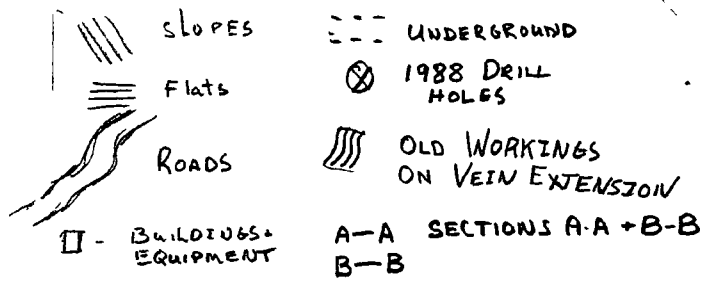 SLOPES
Flats
ROADS
- BUILDINGS+
EQUIPMENT
UNDERGROUND
1988 DRILL
HOLES
OLD WORKINGS
ON VEIN EXTENSION
A—A SECTIONS A-A + B-B
B—B